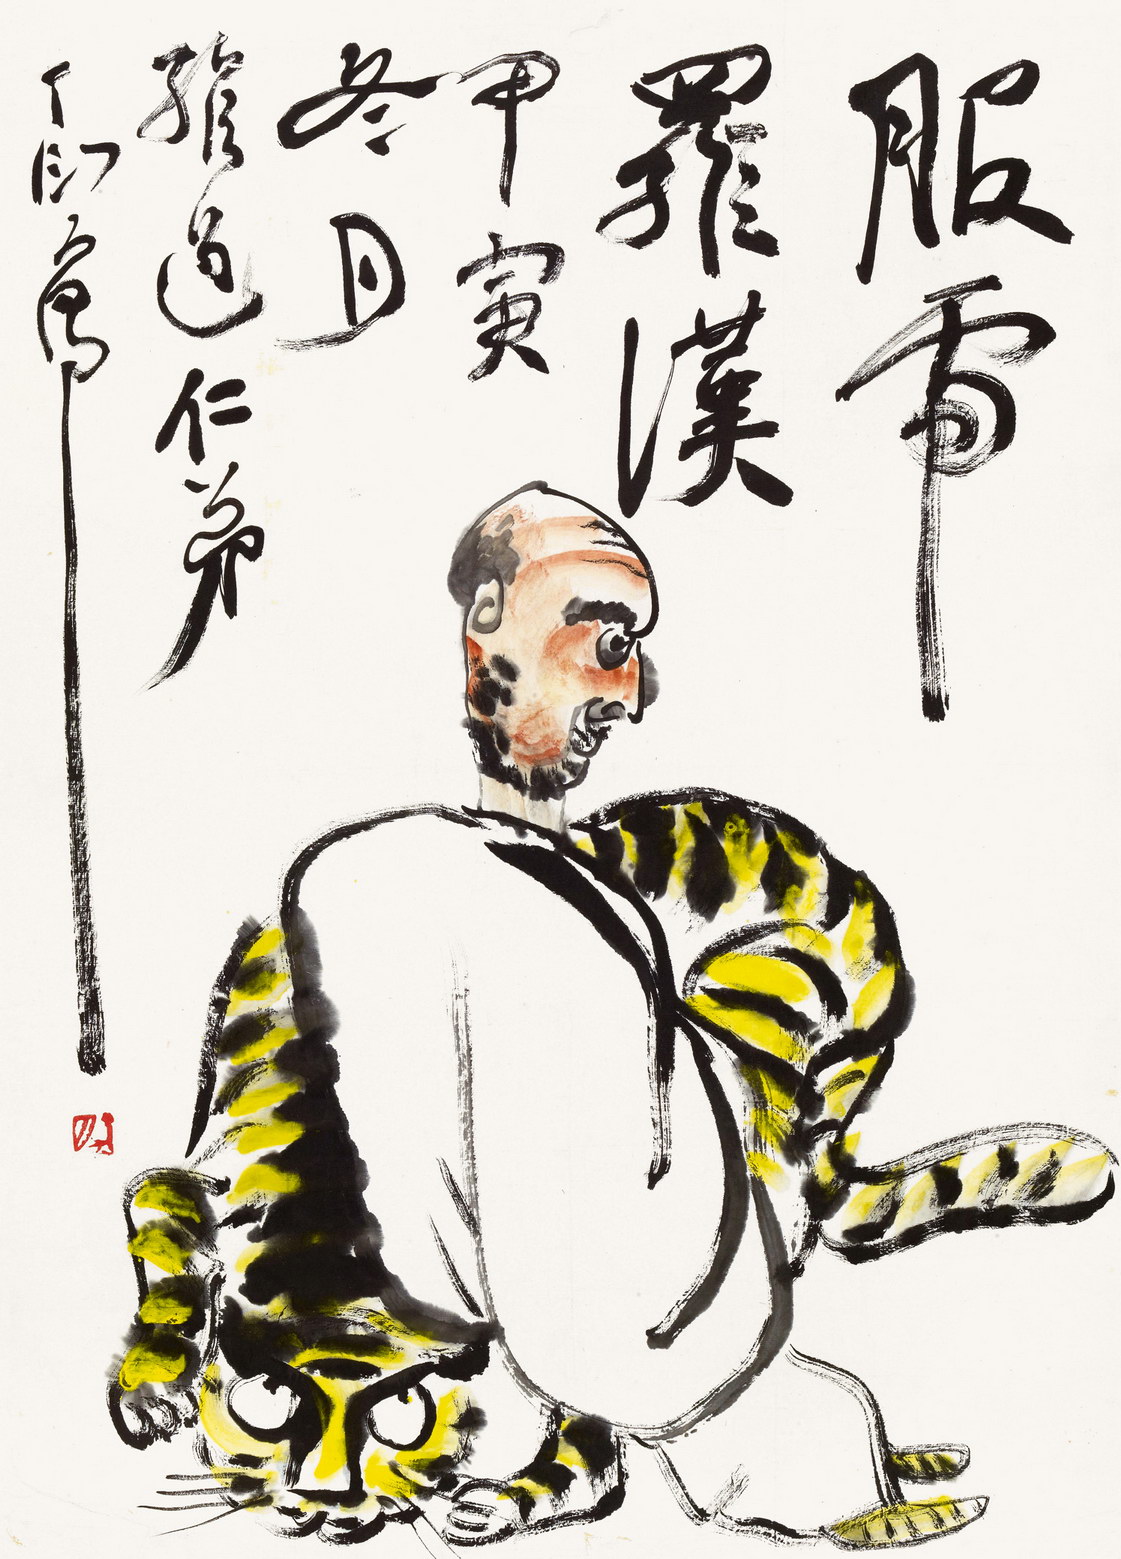 服虎
羅漢
甲寅
冬月
維道仁弟
丁衍庸